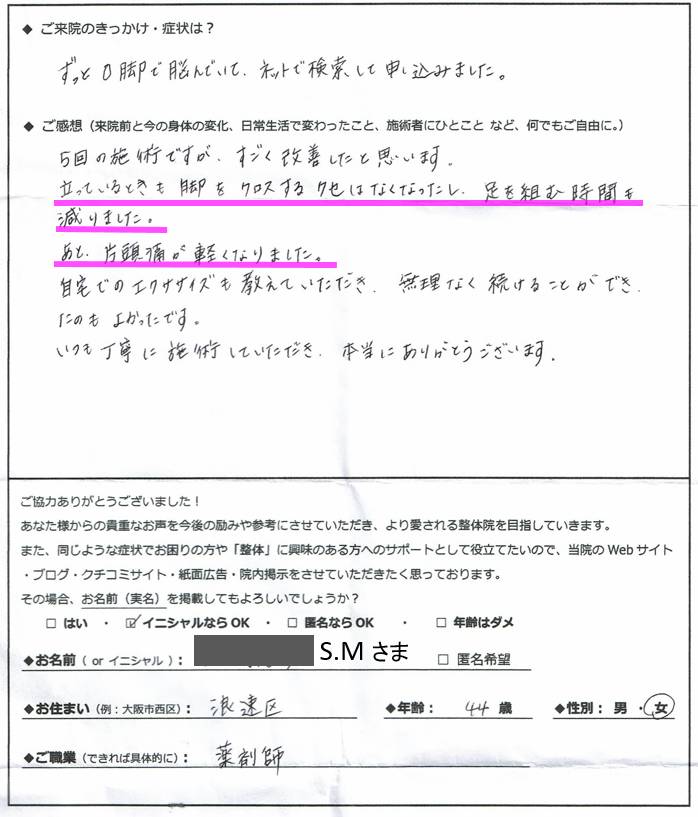 ◆ ご来院のきっかけ・症状は？
ずっとO脚で脳んでいて、ネットで検索して申し込みました。
◆ ご感想（来院前と今の身体の変化、日常生活で変わったこと、施術者にひとこと など、何でもご自由に。）
5回の施術ですが、すごく改善したと思います。
立っているときも脚をクロスするクセはなくなったし、足を組む時間も
減りました。
あと、片頭痛が軽くなりました。
自宅でのエクササイズも教えていただき、無理なく続けることができ、
たのもよかったです。
いつも丁寧に施術していただき、本当にありがとうございます。
ご協力ありがとうございました！
あなた様からの貴重なお声を今後の励みや参考にさせていただき、より愛される整体院を目指していきます。
また、同じような症状でお困りの方や「整体」に興味のある方へのサポートとして役立てたいので、当院の Web サイト
・ブログ・クチコミサイト・紙面広告・院内掲示をさせていただきたく思っております。
その場合、お名前（実名）を掲載してもよろしいでしょうか？
□ はい ・ ☑ イニシャルなら OK ・ □ 匿名なら OK ・ □ 年齢はダメ
◆お名前（ or イニシャル ）： S.M さま □ 匿名希望
◆お住まい（例：大阪市西区）： 浪速区 ◆年齢： 44 歳 ◆性別： 男 ・ 女
◆ご職業（できれば具体的に）： 薬剤師